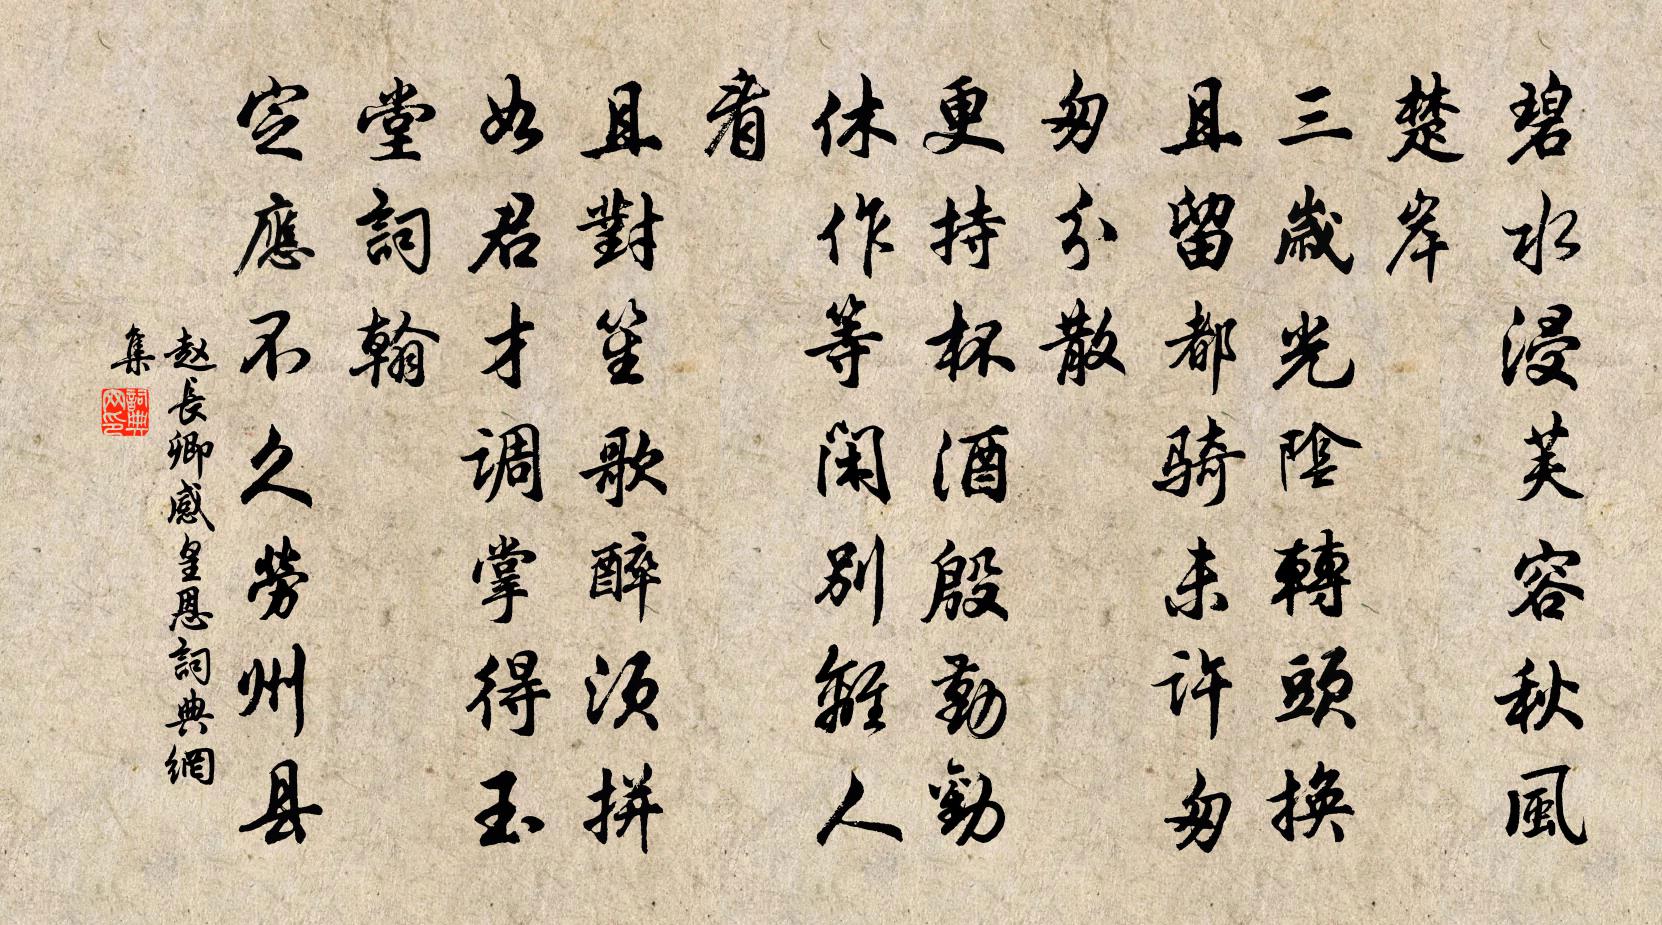 碧水浸芙容秋風
楚岸
三歲光陰轉頭換
且留都騎未許匆
匆分散
更持杯酒殷勤勸
休作等閑別離人
看
且對笙歌醉須拼
如君才調掌得玉
堂詞翰
定應不久勞州县
赵長卿感皇恩詞典網
集
詞典網印